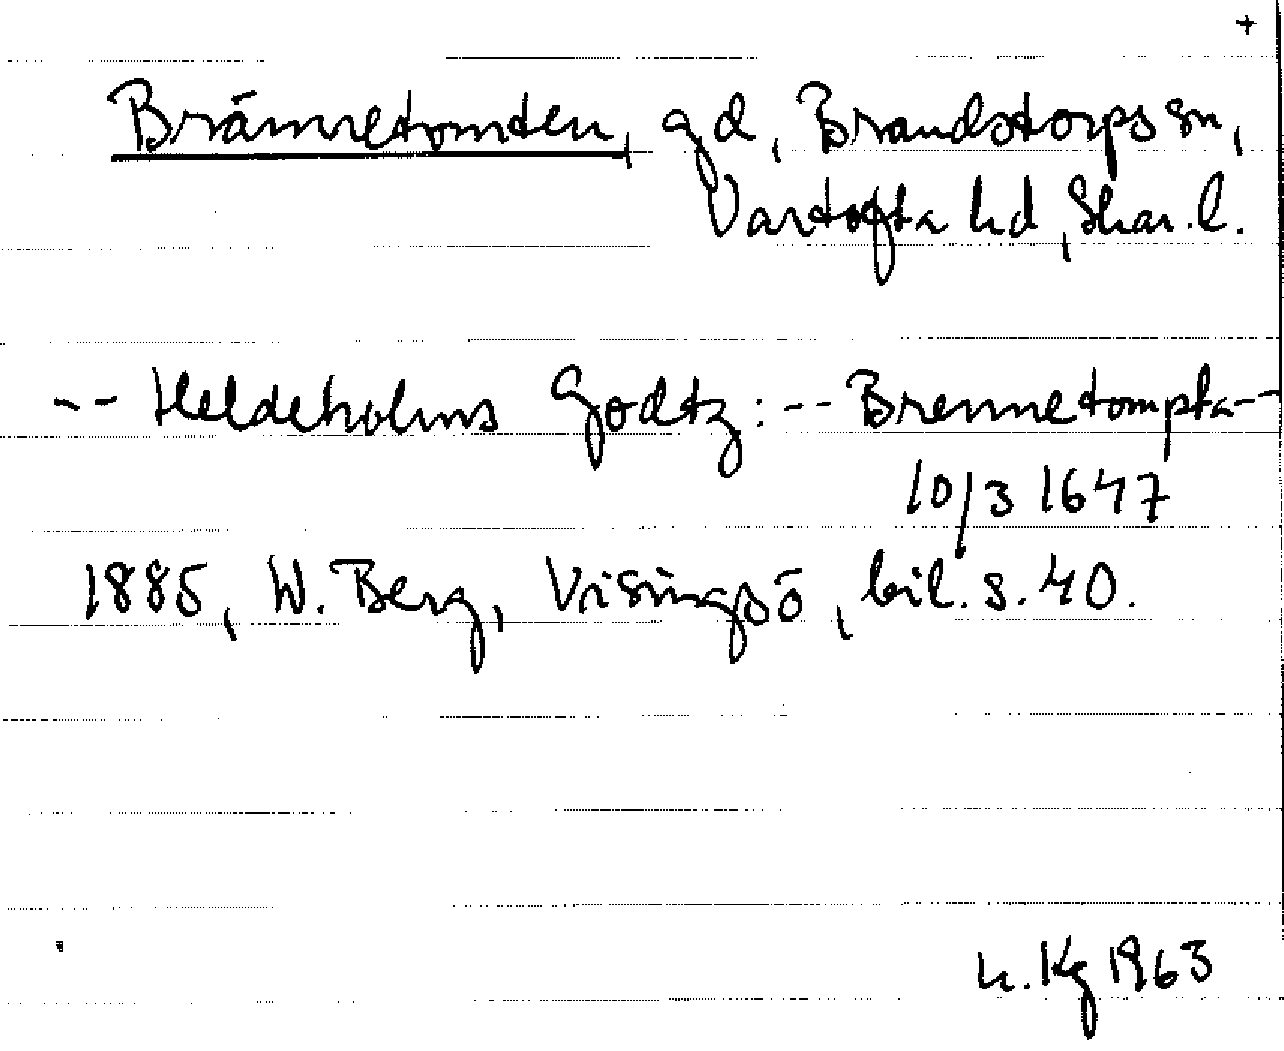 +
Brännetomten, gd, Brandstorps sn,
Vartofta hd, Skar. l.
-- Heldeholms Godtz: -- Brennetompta --
10/3 1647
1885, W. Berg, Visingsö, bil. s. 40.
h. Kg 1963